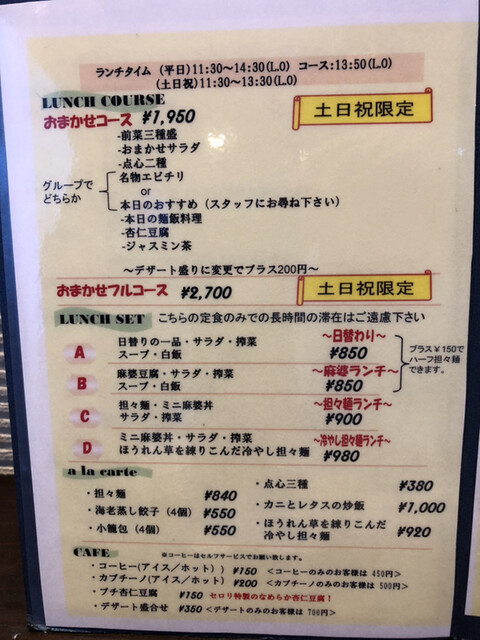 ランチタイム (平日)11:30～14:30(L.O) コース:13:50(L.O)
(土日祝)11:30～13:30(L.O)
LUNCH COURSE
おまかせコース ¥1,950
土日祝限定
-前菜三種盛
-おまかせサラダ
-点心二種
グループで
どちらか
名物エビチリ
or
本日のおすすめ（スタッフにお尋ね下さい）
-本日の麺飯料理
-杏仁豆腐
-ジャスミン茶
～デザート盛りに変更でプラス200円～
おまかせフルコース ¥2,700
土日祝限定
LUNCH SET こちらの定食のみでの長時間の滞在はご遠慮下さい
A 日替りの一品・サラダ・搾菜
スープ・白飯
～日替わり～
¥850
B 麻婆豆腐・サラダ・搾菜
スープ・白飯
～麻婆ランチ～
¥850
プラス¥150で
ハーフ担々麺
できます。
C 担々麺・ミニ麻婆丼
サラダ・搾菜
～担々麺ランチ～
¥900
D ミニ麻婆丼・サラダ・搾菜
ほうれん草を練りこんだ冷やし担々麺
～冷やし担々麺ランチ～
¥980
a la carte
・担々麺 ¥840
・海老蒸し餃子（4個） ¥550
・小籠包（4個） ¥550
・点心三種 ¥380
・カニとレタスの炒飯 ¥1,000
・ほうれん草を練りこんだ
冷やし担々麺 ¥920
CAFE
※コーヒーはセルフサービスでお願い致します。
・コーヒー(アイス／ホット)) ¥150 <コーヒーのみのお客様は 450円>
・カプチーノ(アイス／ホット) ¥200 <カプチーノのみのお客様は 500円>
・プチ杏仁豆腐 ¥150 セロリ特製のなめらか杏仁豆腐！
・デザート盛合せ ¥350 <デザートのみのお客様は 700円>